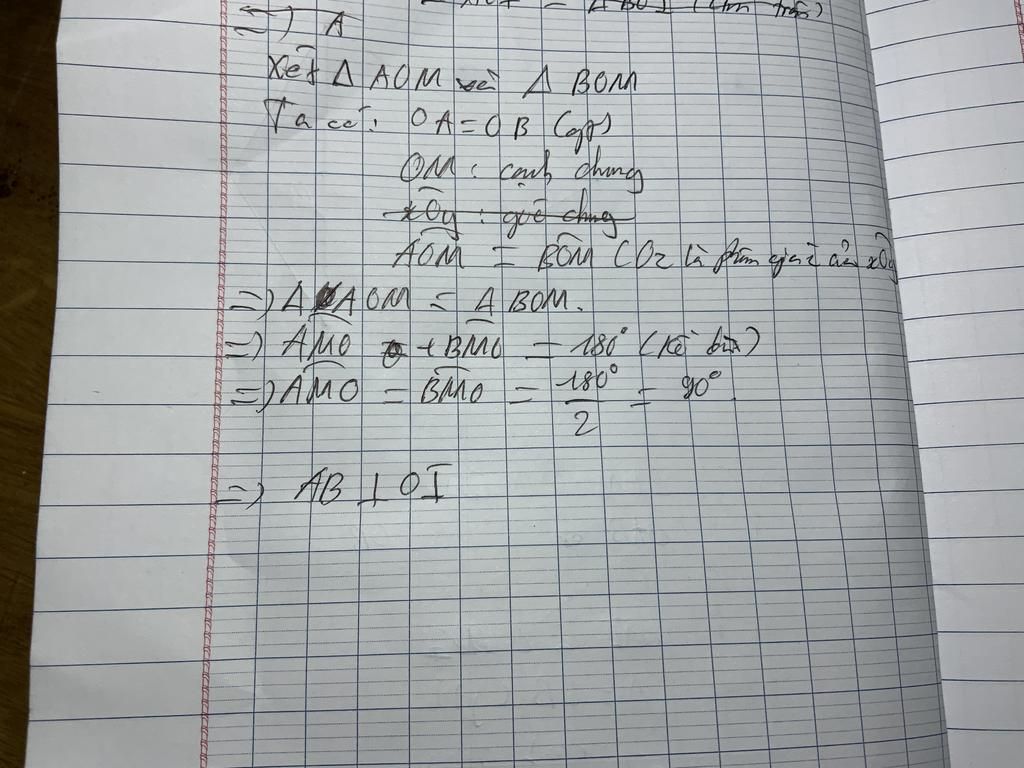 => A
Xét Δ AOM và Δ BOM
Ta có: OA = OB (gt)
OM : cạnh chung
xOy : góc chung
AOM = BOM (Oz là phân giác của xOy
=> Δ AOM = Δ BOM.
=> AMO + BMO = 180° (Kề bù)
=> AMO = BMO = 180°/2 = 90°
=> AB ⊥ OI